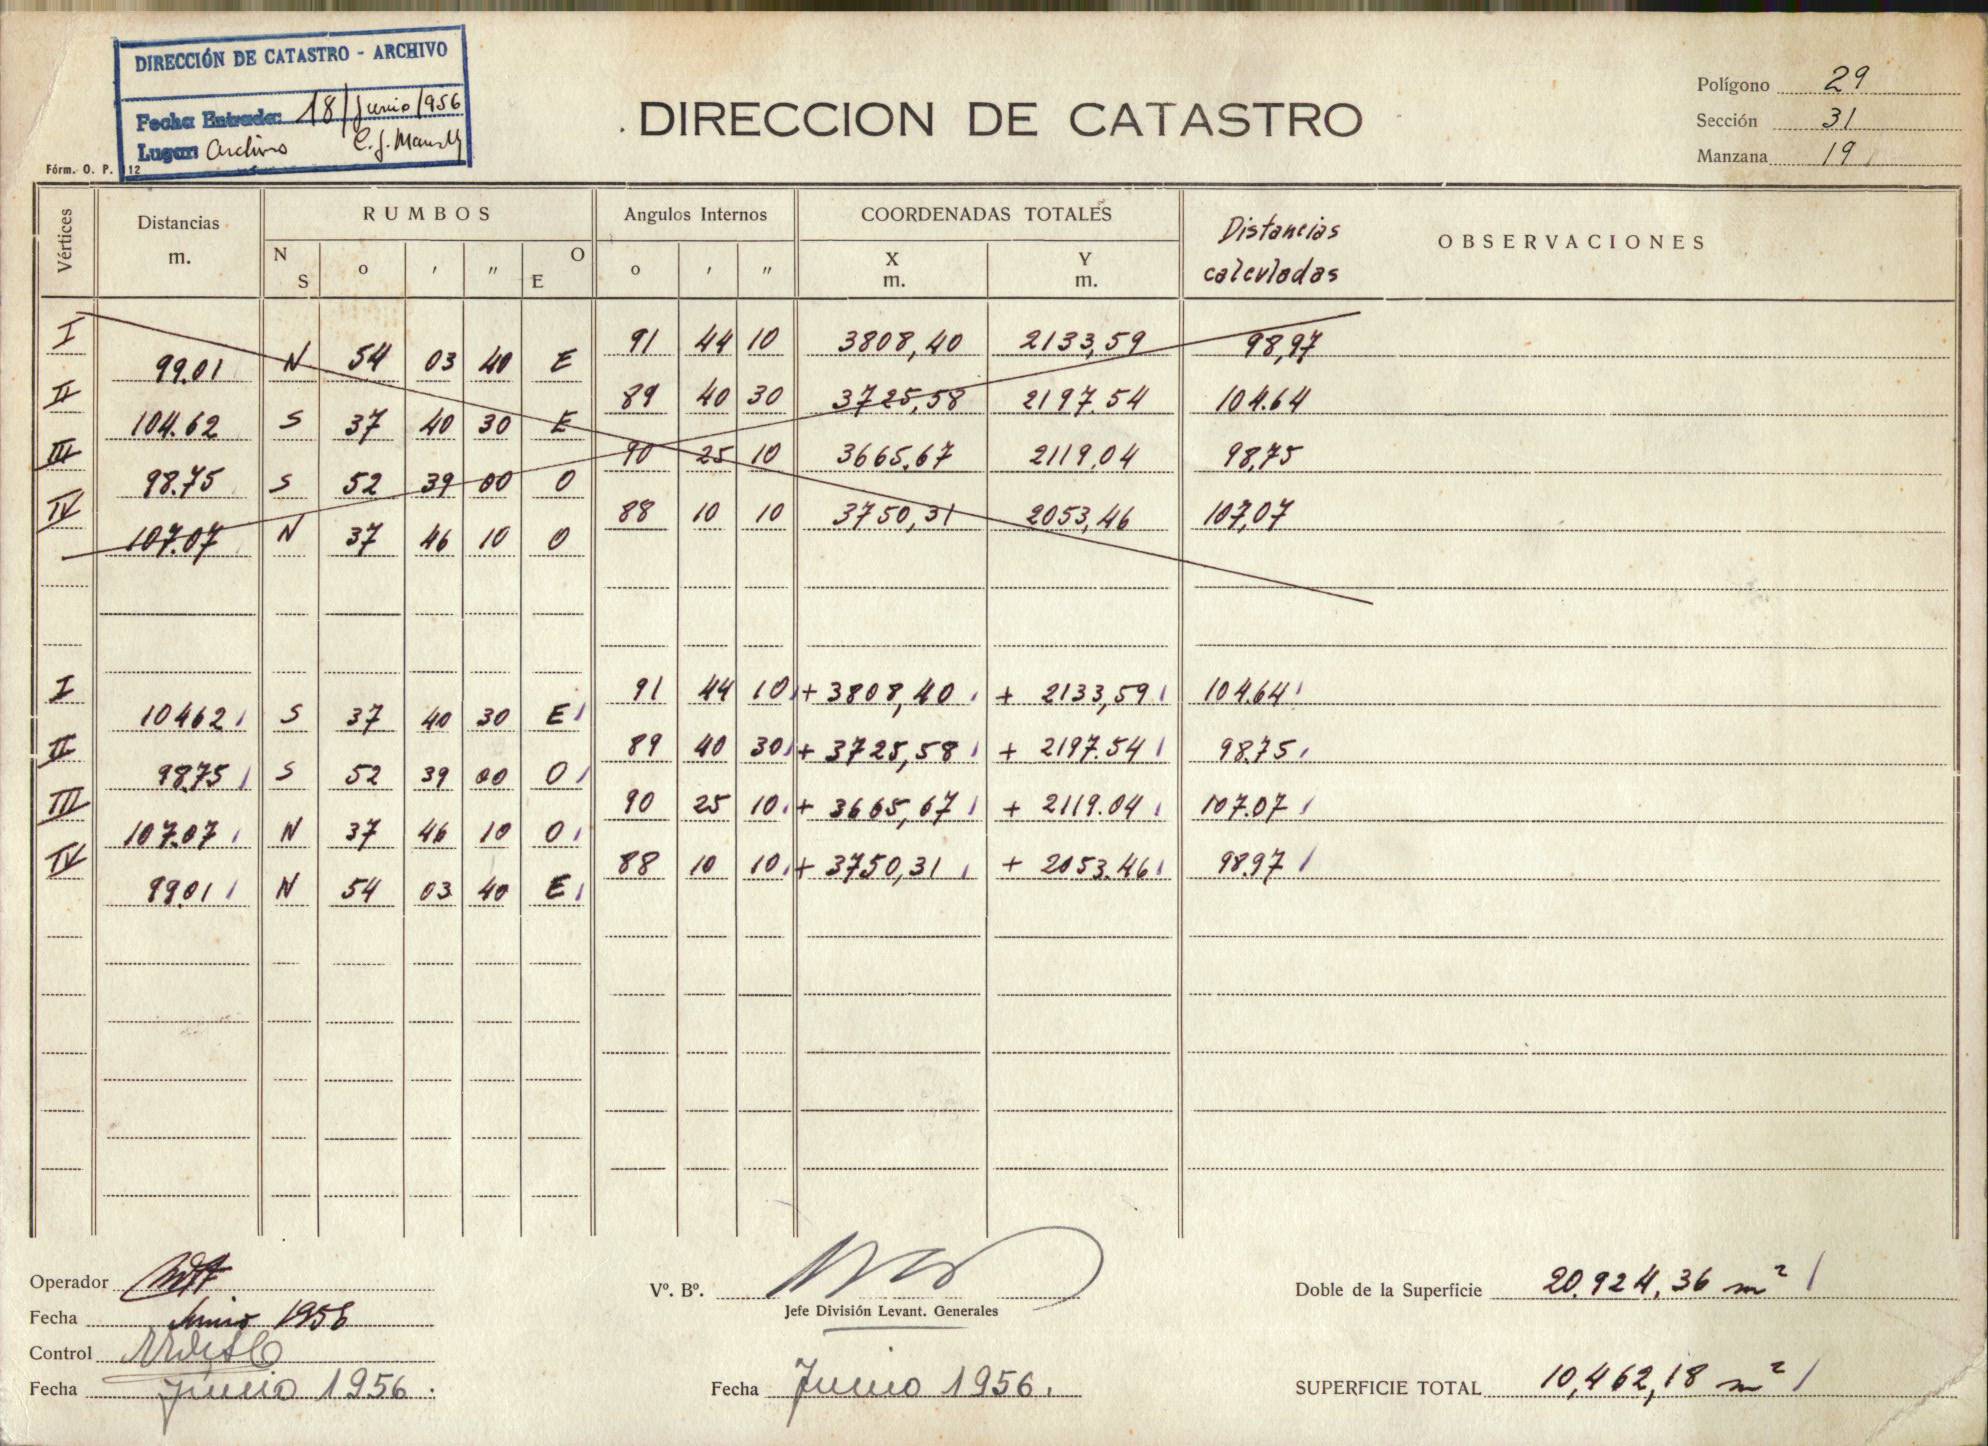 DIRECCIÓN DE CATASTRO - ARCHIVO
Fecha Entrada: 18/Junio/956
Lugar: Archivo
Fórm. O. P. 112
DIRECCION DE CATASTRO
Polígono 29
Sección 31
Manzana 19
Vértices
Distancias
m.
RUMBOS
N S ° ′ ″ O E
Angulos Internos
° ′ ″
COORDENADAS TOTALES
X
m.
Y
m.
Distancias
calculadas
OBSERVACIONES
I 91 44 10 3808,40 2133,59 98,97
99.01 N 54 03 40 E
II 89 40 30 3725,58 2197.54 104.64
104.62 S 37 40 30 E
III 90 25 10 3665,67 2119,04 98,75
98.75 S 52 39 00 O
IV 88 10 10 3750,31 2053,46 107,07
107.07 N 37 46 10 O
I 91 44 10 + 3808,40 + 2133,59 104.64
104.62 S 37 40 30 E
II 89 40 30 + 3725,58 + 2197.54 98.75
98.75 S 52 39 00 O
III 90 25 10 + 3665,67 + 2119.04 107.07
107.07 N 37 46 10 O
IV 88 10 10 + 3750,31 + 2053.46 98.97
99.01 N 54 03 40 E
Operador
Fecha Junio 1956
Control
Fecha Junio 1956.
Vº. Bº.
Jefe División Levant. Generales
Fecha Junio 1956.
Doble de la Superficie 20.924,36 m²
SUPERFICIE TOTAL 10,462,18 m²